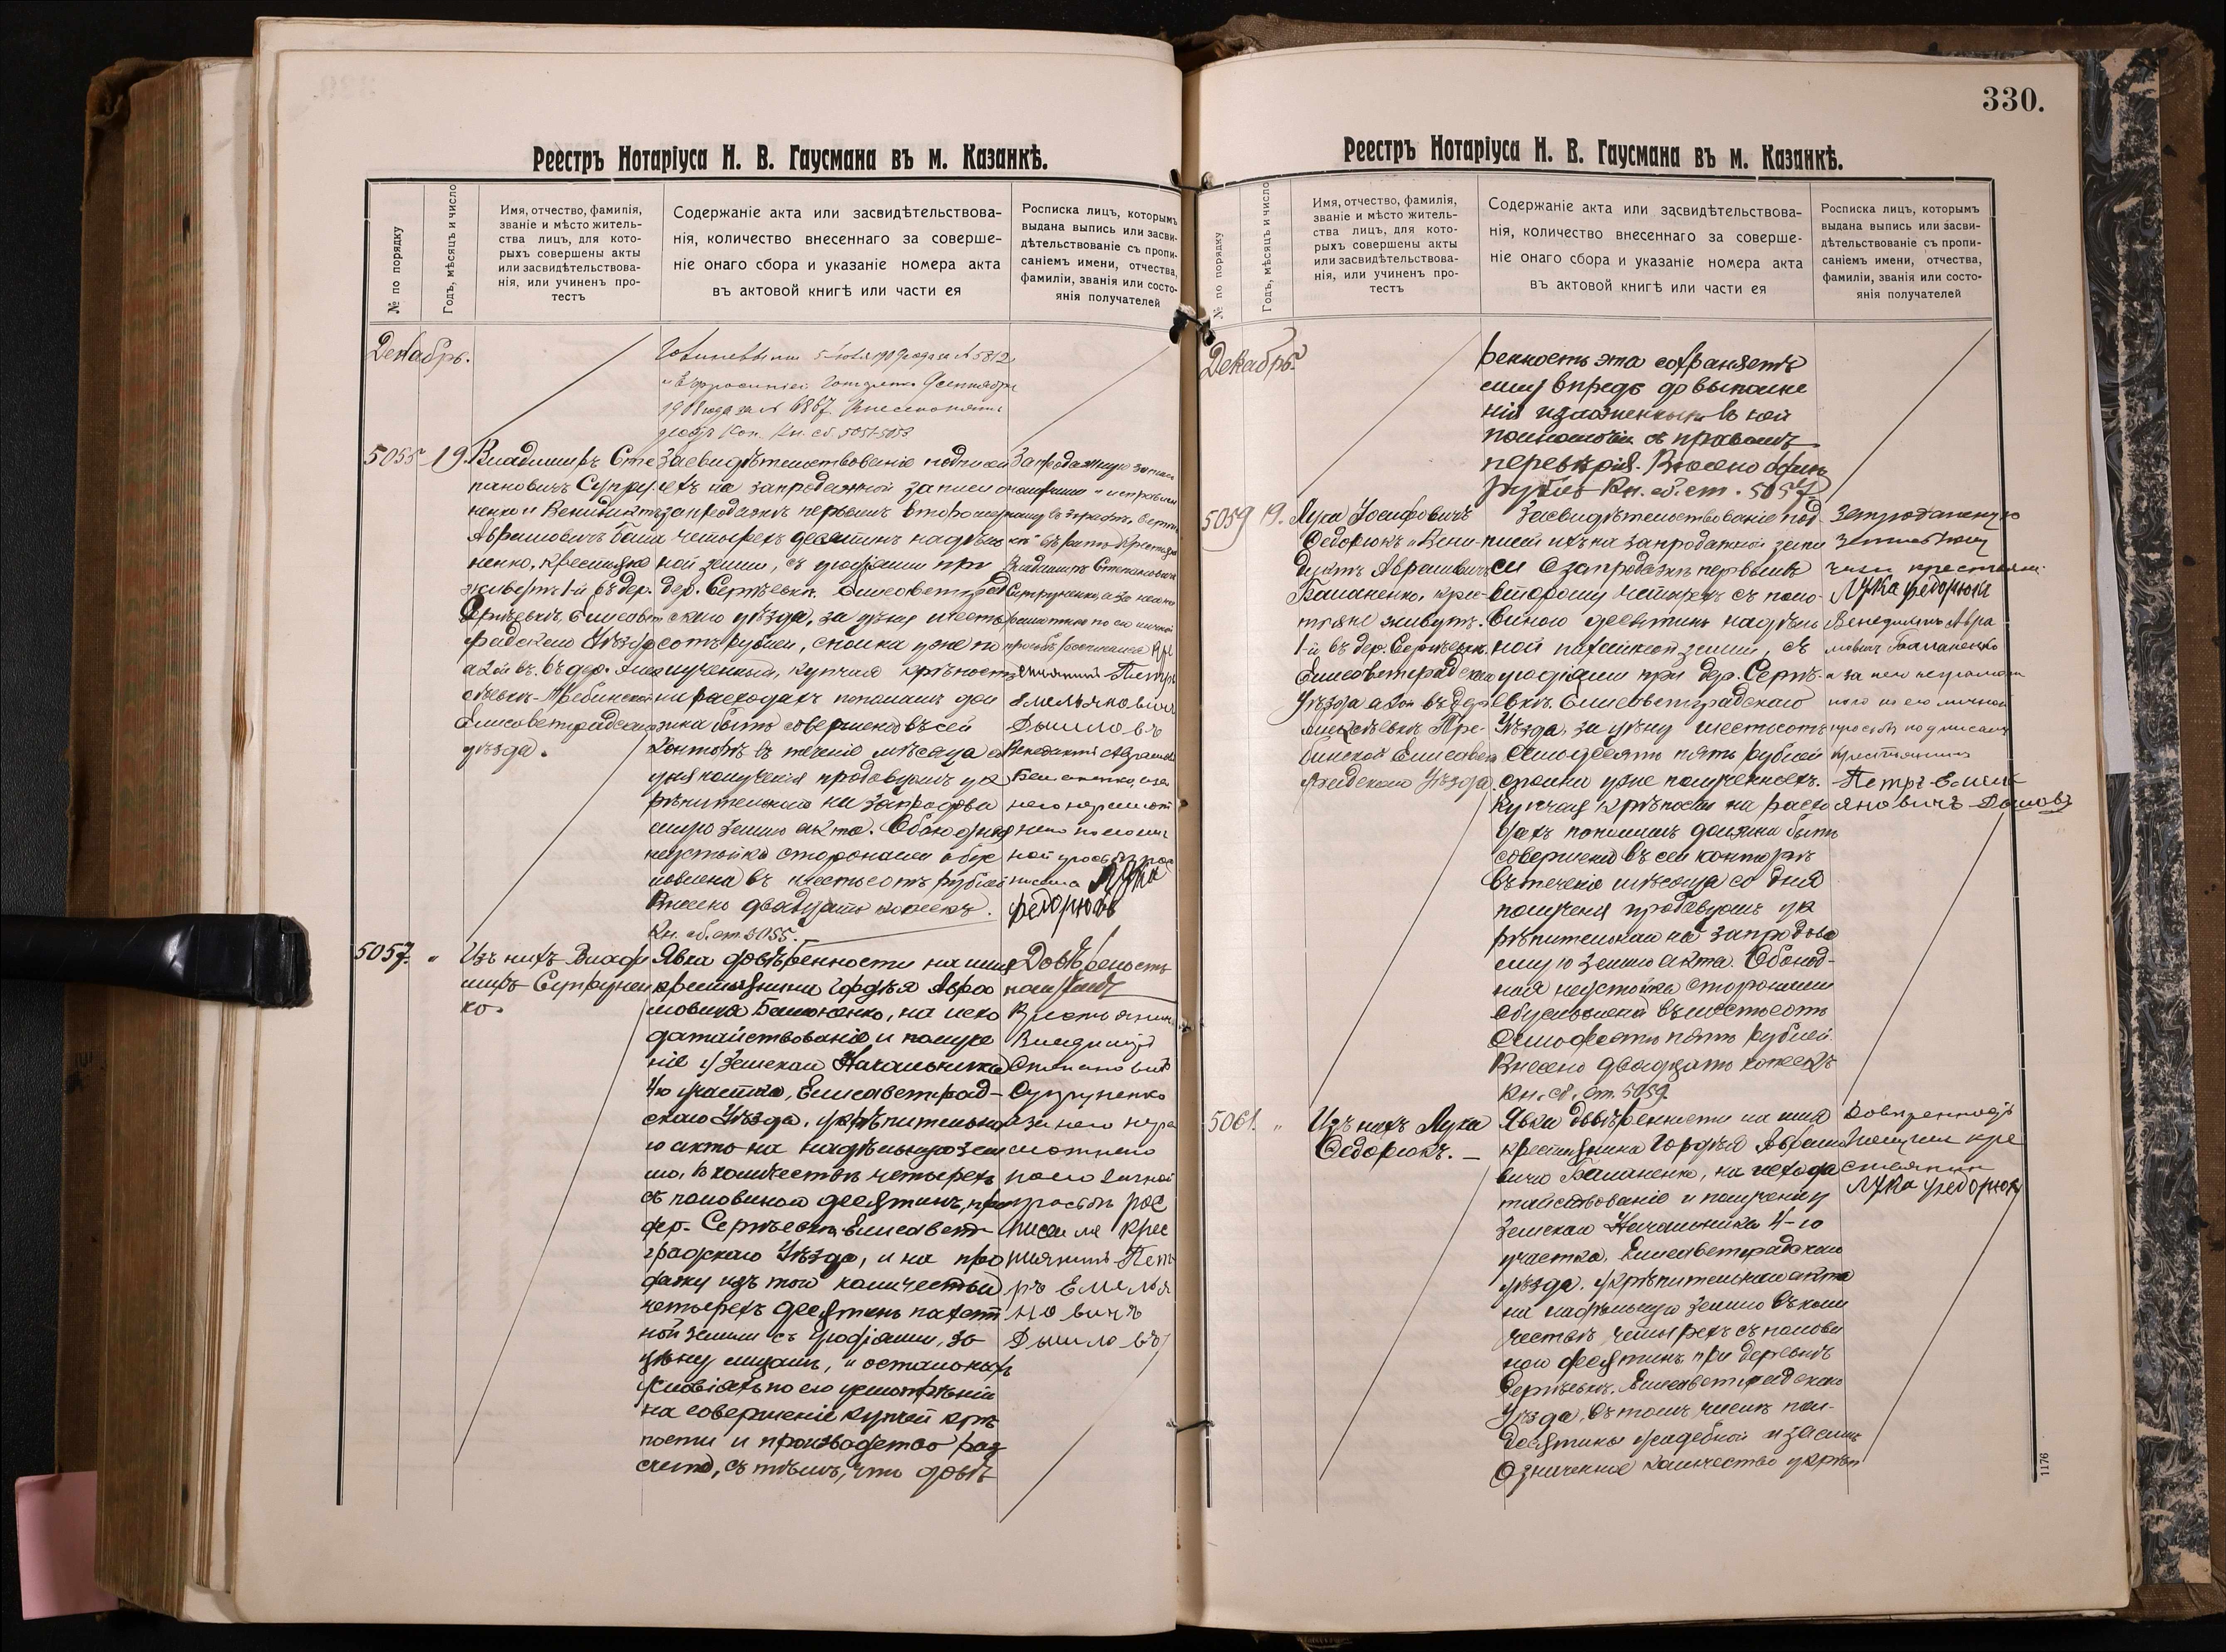 Реестръ Нотаріуса Н. В. Гаусмана въ м. Казанкѣ.
№ по порядку
Годъ, мѣсяцъ и число
Имя, отчество, фамилія,
званіе и мѣсто житель-
ства лицъ, для кото-
рыхъ совершены акты
или засвидѣтельствова-
нія, или учиненъ про-
тестъ
Содержаніе акта или засвидѣтельствова-
нія, количество внесеннаго за соверше-
ніе онаго сбора и указаніе номера акта
въ актовой книгѣ или части ея
Росписка лицъ, которымъ
выдана выпись или засви-
дѣтельствованіе съ пропи-
саніемъ имени, отчества,
фамиліи, званія или состо-
янія получателей
Декабрь.
5 Іюля 1908 года за № 5812
1908 года за № 6867.
Кн. сб. 5051-5053
5055
19.
Владимиръ Сте
пановичъ Супру
ненко и Венидиктъ
Аврамовичъ Бала
ненко, крестьяне
живутъ 1-й въ дер.
Сергѣевкѣ, Елисавет
градскаго Уѣзда
а 2й въ дер. Алек
сѣевкѣ-
Елисаветградскаго
уѣзда.
Засвидѣтельствованіе подписей
ихъ на запродажной записи о
запродажѣ первымъ второму
четырехъ десятинъ надѣль
ной земли, съ угодіями при
дер. Сергѣевкѣ Елисаветград
скаго уѣзда, за цѣну шесть
сотъ рублей, сполна уже по
лученныхъ, купчая крѣпость
и расходахъ пополамъ дол
жна быть совершена въ сей
Конторѣ въ теченіе мѣсяца со
дня полученія продавцомъ ук
рѣпительнаго на запродава
емую землю акта. Обоюдная
неустойка сторонами обус
ловлена въ шестьсотъ рублей
Внесено двадцать копеекъ.
Кн. сб. ст. 5055.
Запродажную запись
Крестьяне
Владимиръ Степановичъ
Супруненко, а за него
неграмотнаго по его личной
просьбѣ росписался Кре
стьянинъ Петръ
Эмельяновичъ
Дышловъ
Венедиктъ Аврамовъ
Балоненко, а за
него неграмот
наго по его лич
ной просьбѣ рос
писался Лука
Федорюкъ
5057.
"
Изъ нихъ Влади
миръ Супрунен
ко.
Явка довѣренности на имя
крестьянина Гордѣя Авра
мовича Балоненко, на исхо
датайствованіе и получе
ніе у Земскаго Начальника
4го участка, Елисаветград-
скаго Уѣзда, укрѣпительна
го акта на надѣльную зем
лю, въ количествѣ четырехъ
съ половиною десятинъ, при
дер. Сергѣевкѣ Елисавет-
градскаго Уѣзда, и на про
дажу изъ того количества
четырехъ десятинъ пахот
ной земли съ угодіями, за
цѣну лицамъ, и остальныхъ
условіяхъ по его усмотрѣнію
на совершеніе купчей крѣ
пости и производство раз
счета, съ тѣмъ, что довѣ
Довѣреность
получилъ
Владимиръ
Степановичъ
Супруненко
а за него негра
мотнаго
по его личной
просьбѣ рос
писался Крес
тьянинъ Пет
ръ Емелья
новичъ
Дышловъ
330.
Реестръ Нотаріуса Н. В. Гаусмана въ м. Казанкѣ.
№ по порядку
Годъ, мѣсяцъ и число
Имя, отчество, фамилія,
званіе и мѣсто житель-
ства лицъ, для кото-
рыхъ совершены акты
или засвидѣтельствова-
нія, или учиненъ про-
тестъ
Содержаніе акта или засвидѣтельствова-
нія, количество внесеннаго за соверше-
ніе онаго сбора и указаніе номера акта
въ актовой книгѣ или части ея
Росписка лицъ, которымъ
выдана выпись или засви-
дѣтельствованіе съ пропи-
саніемъ имени, отчества,
фамиліи, званія или состо-
янія получателей
Декабрь.
ренность эта сохраняетъ
силу впредь до выполне
нія изложенныхъ въ ней
полномочій съ правомъ
передовѣрія. Внесено одинъ
рубль Кн. сб. ст. 5057.
5059
19.
Лука Іосифовичъ
Федорюкъ и Вени-
диктъ Аврамовичъ
Балоненко, кре-
стьяне живутъ
1-й въ дер. Сергѣевкѣ
Елисаветградскаго
Уѣзда а 2ой въ дер
Алексѣевкѣ
Елисавет
градскаго Уѣзда.
Засвидѣтельствованіе под
писей ихъ на запродажной запи
си о запродажѣ первымъ
второму четырехъ съ поло-
виною десятинъ надѣль
ной пахатной земли, съ
угодіями при дер. Сергѣ-
евкѣ Елисаветградскаго
Уѣзда, за цѣну шестьсотъ
семьдесятъ пять рублей
сполна уже полученныхъ.
Купчая крѣпость на расхо
дахъ пополамъ должна быть
совершена въ сей конторѣ
въ теченіе мѣсяца со дня
полученія продавцомъ ук
рѣпительнаго на запродава
емую землю акта. Обоюд-
ная неустойка сторонами
обусловлена въ шестьсотъ
семьдесятъ пять рублей.
Внесено двадцать копеекъ
Кн. сб. ст. 5059.
Запроданную
крестьяни
Лука Федорюкъ
Венедиктъ Авра
мовичъ Балоненко
а за него неграмот
наго по его личной
просьбѣ подписался
крестьянинъ
Петръ Емель
яновичъ Дышловъ
5061.
"
Изъ нихъ Лука
Федорюкъ. —
Явка довѣренности на имя
крестьянина Гордѣя Аврамо
вича Балоненко, на исхода
тайствованіе и полученіе у
Земскаго Начальника 4-го
участка, Елисаветградскаго
уѣзда, укрѣпительнаго акта
на надѣльную землю въ коли
чествѣ четырехъ съ полови
ною десятинъ при деревнѣ
Сергѣевкѣ, Елисаветградскаго
Уѣзда, въ томъ числѣ пол-
десятины усадебной и
означенное количество укрѣп
Довѣренность
получилъ кре
стьянинъ
Лука Федорюкъ
1176